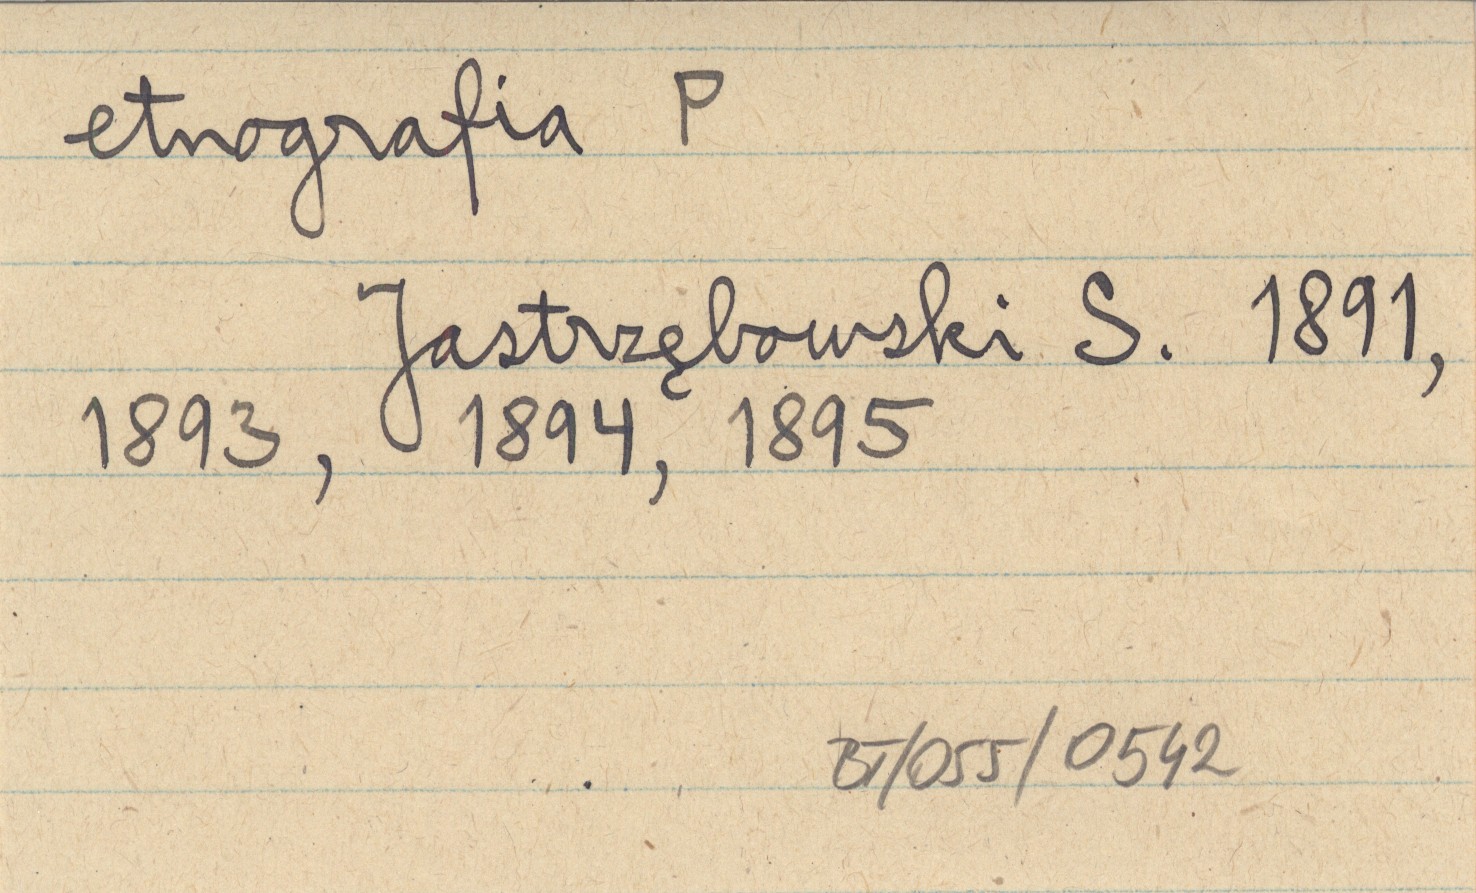 etnografia P
Jastrzębowski S. 1891,
1893, 1894, 1895
BT/055/0542